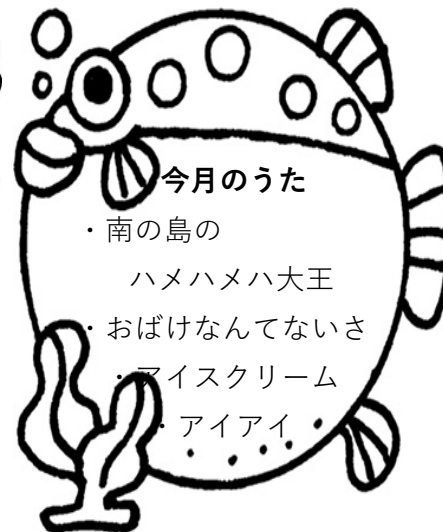 今月のうた
・南の島の
ハメハメハ大王
・おばけなんてないさ
・アイスクリーム
・アイアイ